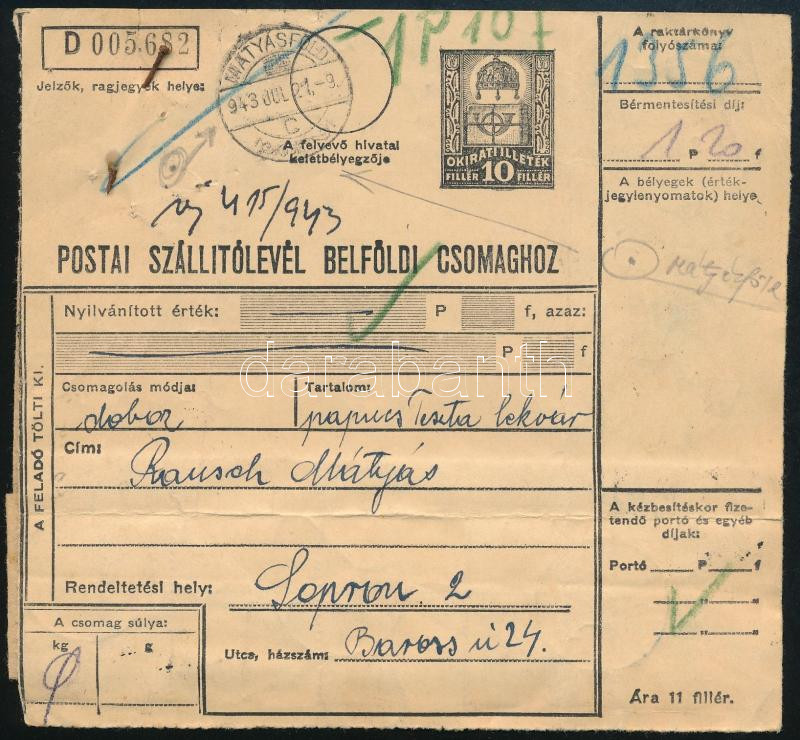 D 005.682
Jelzők, ragjegyek helye:
MÁTYÁSFÖLD
943 JUL 21.-9.
C
A felvevő hivatal
keletbélyegzője
1P 107
OKIRATI ILLETÉK
FILLÉR 10 FILLÉR
A raktárkönyv
folyószáma:
1356
Bérmentesítési díj:
1 P 20 f
A bélyegek (érték-
jegylenyomatok) helye
Mátyásföld
415/943
POSTAI SZÁLLITÓLEVÉL BELFÖLDI CSOMAGHOZ
A FELADÓ TÖLTI KI.
Nyilvánított érték: P f, azaz:
P f
Csomagolás módja: Tartalom:
doboz papucs Teszta lekvár
Cím: Rausch Mátyás
Rendeltetési hely: Sopron. 2
Utca, házszám: Baross ú 24.
A csomag súlya:
kg g
A kézbesítéskor fize-
tendő portó és egyéb
díjak:
Portó P f
„ „
„ „
Ára 11 fillér.
darabanth